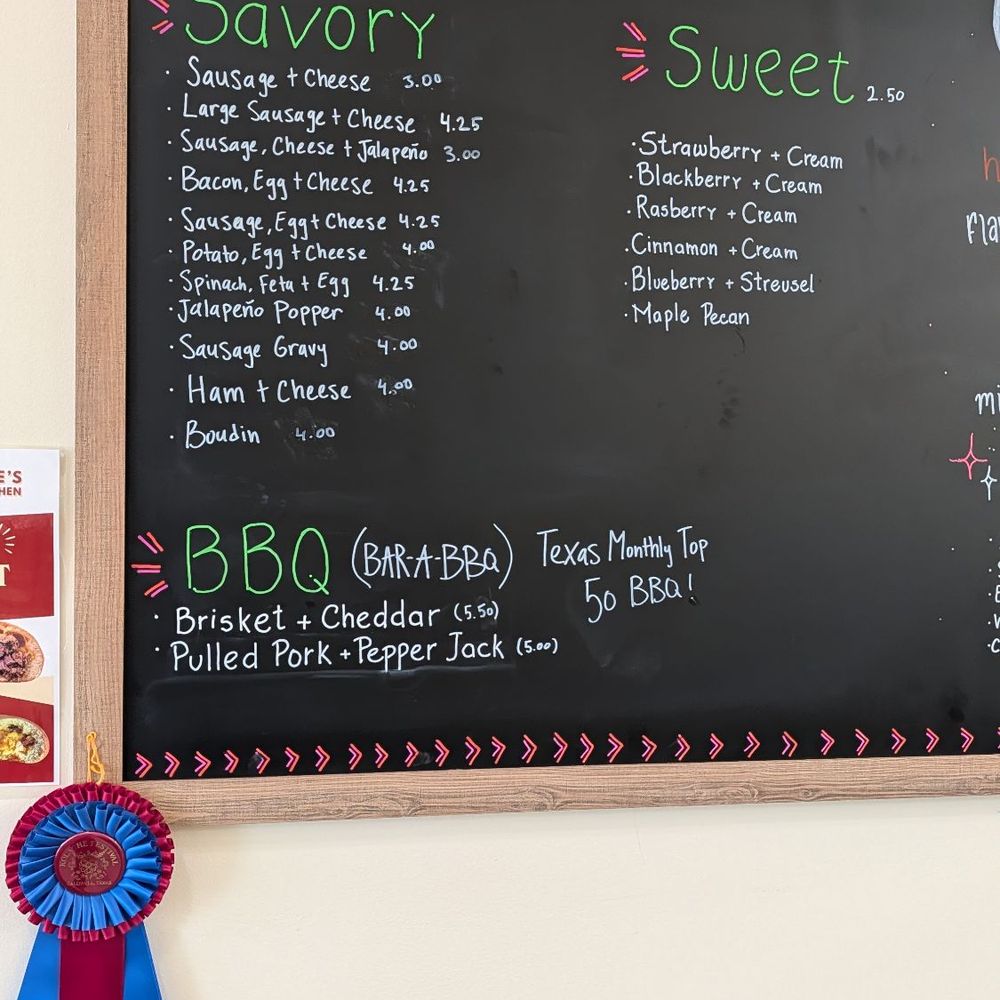 Savory
· Sausage + Cheese 3.00
· Large Sausage + Cheese 4.25
· Sausage, Cheese + Jalapeño 3.00
· Bacon, Egg + Cheese 4.25
· Sausage, Egg + Cheese 4.25
· Potato, Egg + Cheese 4.00
· Spinach, Feta + Egg 4.25
· Jalapeño Popper 4.00
· Sausage Gravy 4.00
· Ham + Cheese 4.00
· Boudin 4.00
Sweet 2.50
· Strawberry + Cream
· Blackberry + Cream
· Rasberry + Cream
· Cinnamon + Cream
· Blueberry + Streusel
· Maple Pecan
BBQ (BAR-A-BBQ) Texas Monthly Top
50 BBQ!
· Brisket + Cheddar (5.50)
· Pulled Pork + Pepper Jack (5.00)
KOLACHE FESTIVAL
CALDWELL, TEXAS